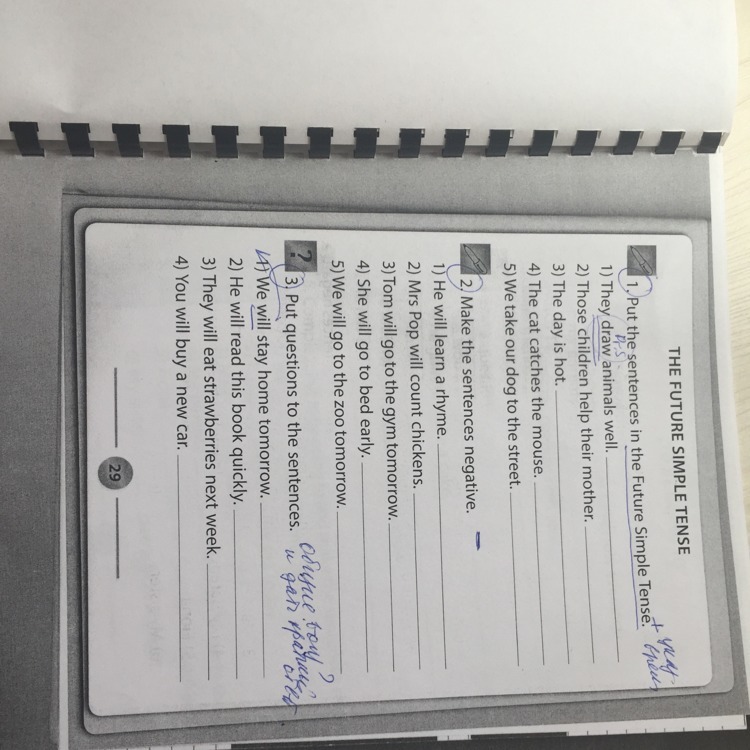 THE FUTURE SIMPLE TENSE
1. Put the sentences in the Future Simple Tense. +
Pr.S.
1) They draw animals well.
2) Those children help their mother.
3) The day is hot.
4) The cat catches the mouse.
5) We take our dog to the street.
2. Make the sentences negative. –
1) He will learn a rhyme.
2) Mrs Pop will count chickens.
3) Tom will go to the gym tomorrow.
4) She will go to bed early.
5) We will go to the zoo tomorrow.
? 3. Put questions to the sentences.
общие
и дать краткий ответ
1) We will stay home tomorrow.
2) He will read this book quickly.
3) They will eat strawberries next week.
4) You will buy a new car.
29